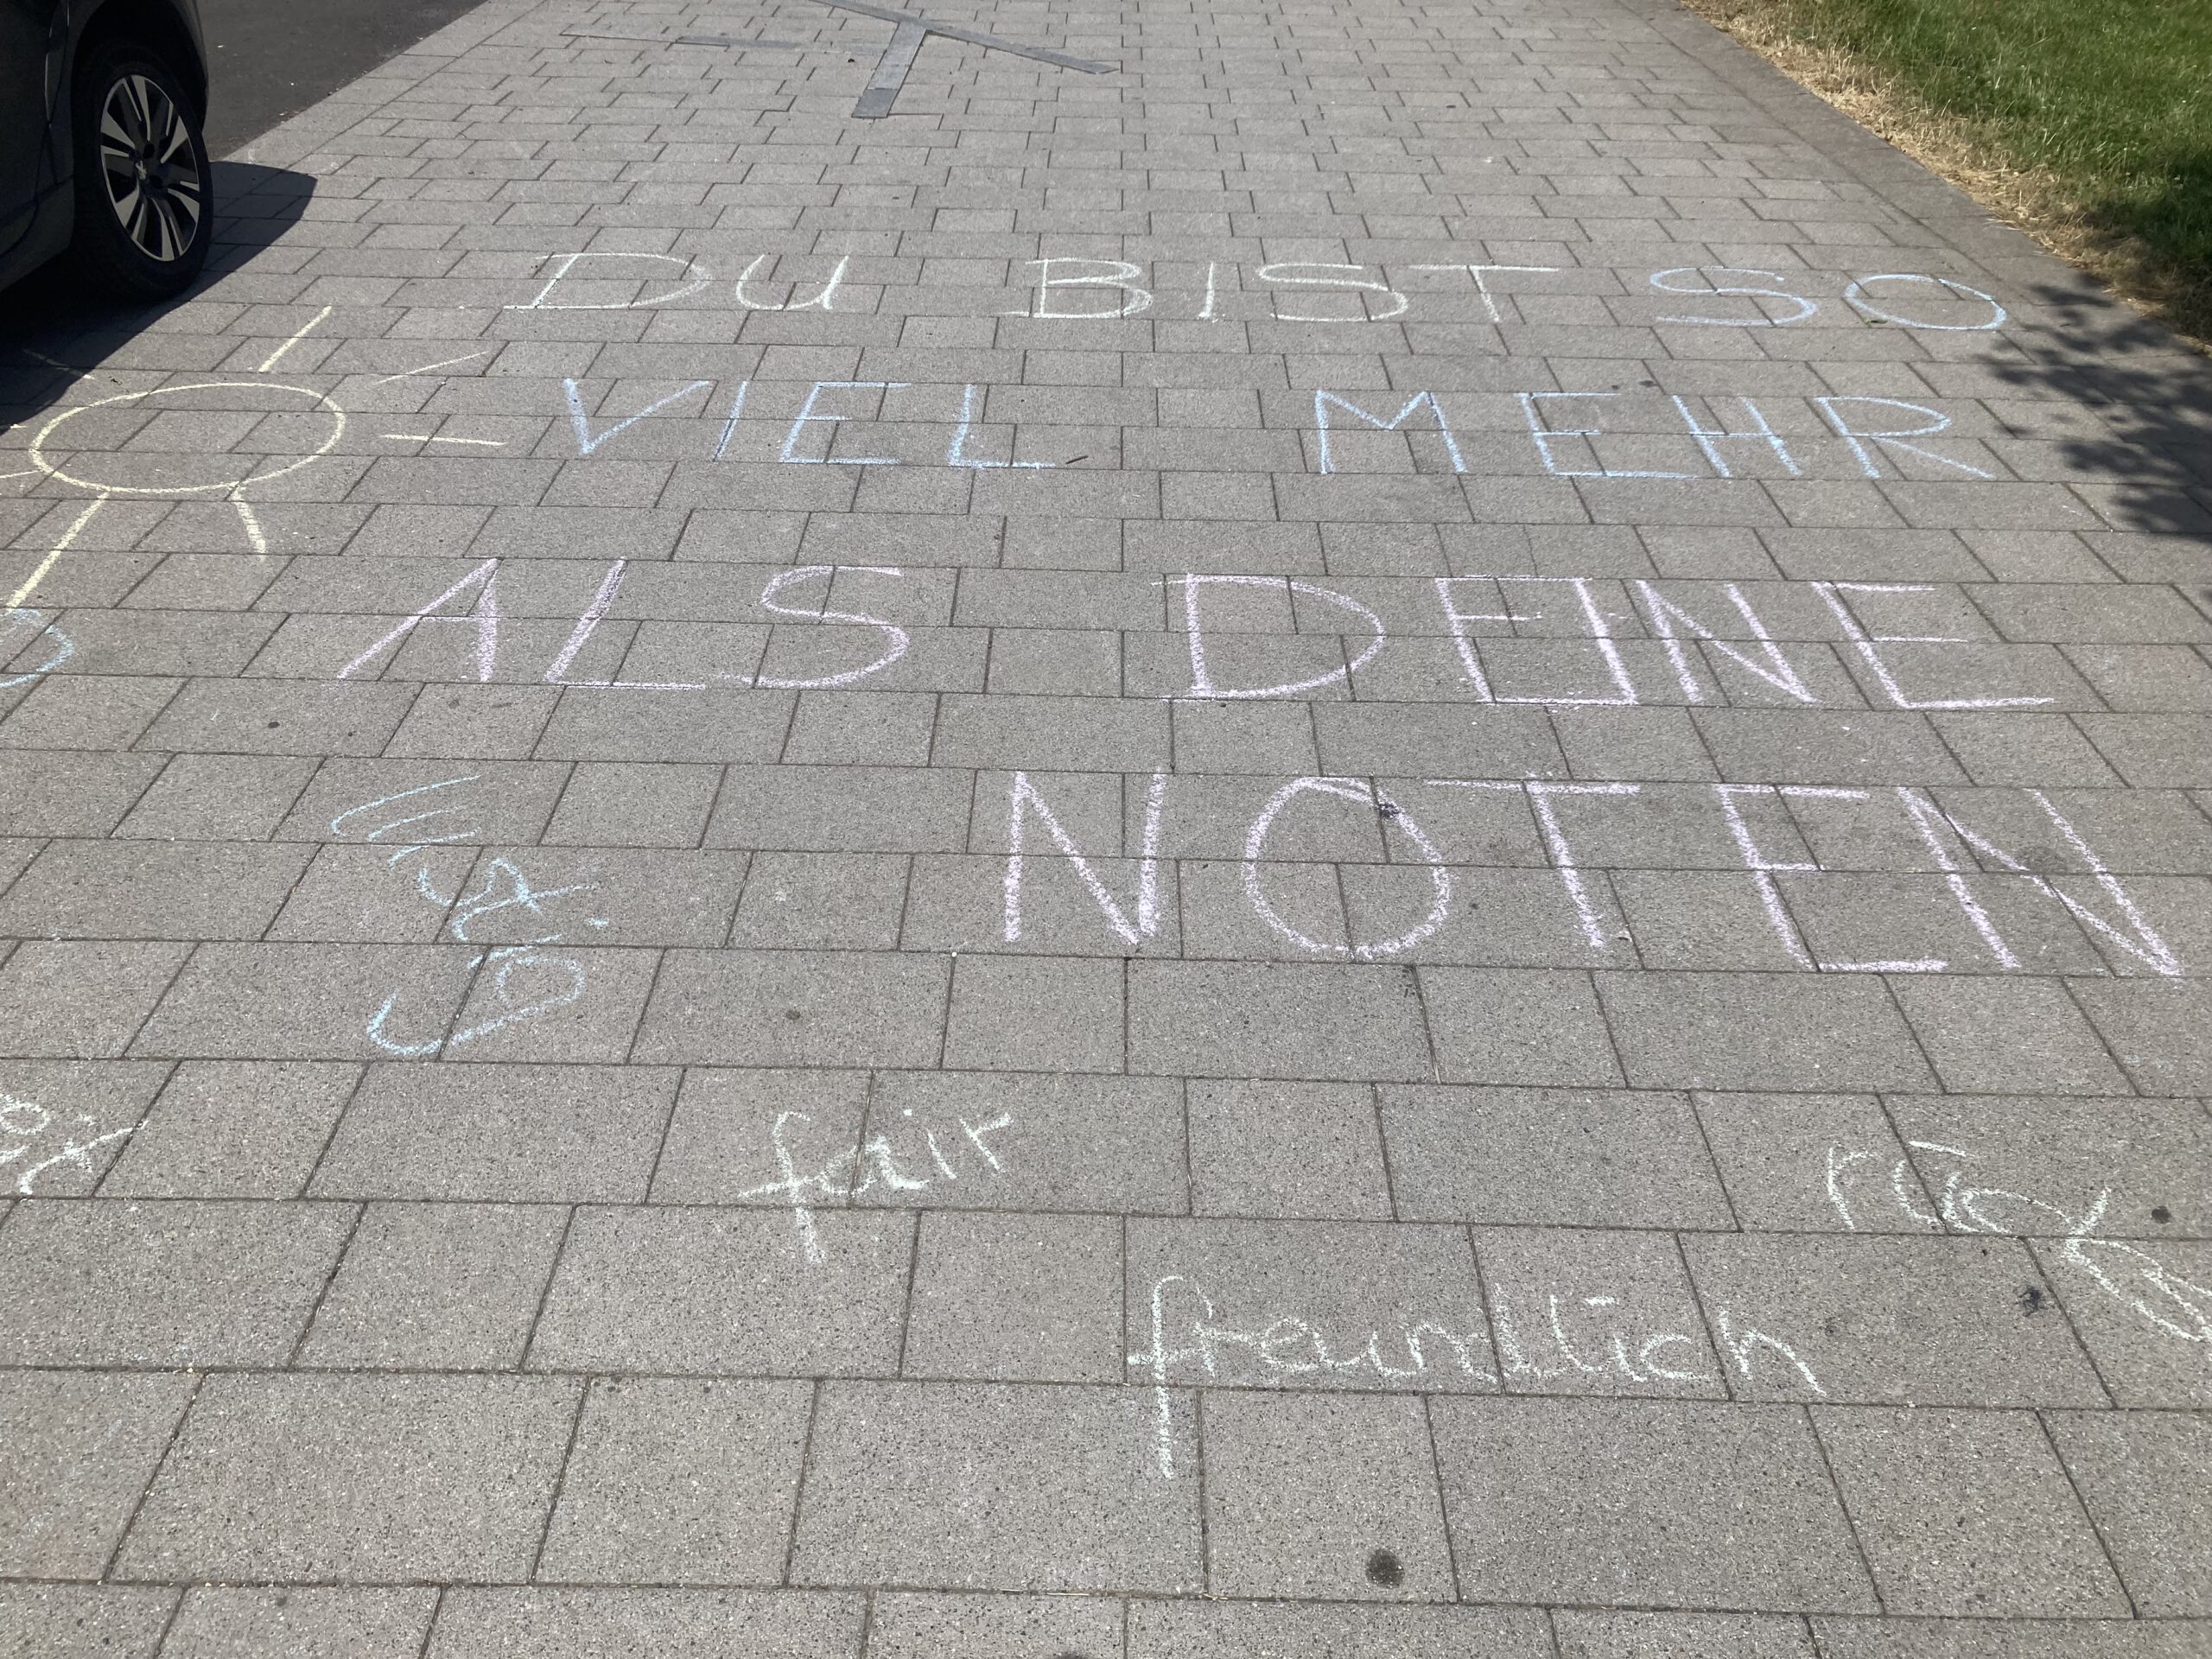 DU BIST SO
VIEL MEHR
ALS DEINE
NOTEN
lustig
fair
freundlich